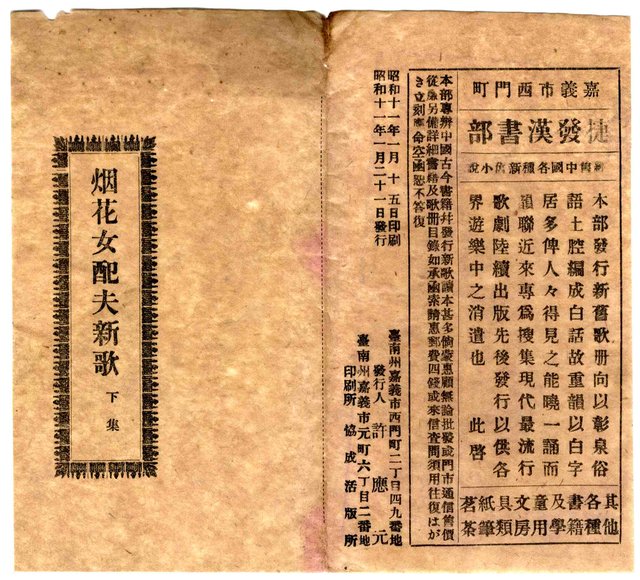 嘉義市西門町
捷發漢書部
辦中國各種新舊小說
本部發行新舊歌册向以彰泉俗
語土腔編成白話故重韻以白字
居多俾人々得見之能曉一誦而
聯近來專爲搜集現代最流行
歌劇陸續出版先後發行以供各
界遊樂中之消遣也　此啓
其他各種書籍及學童用文房具類紙筆茗茶
本部專辨中國古今書籍幷發行新歌讀本甚多倘蒙惠顧無論批發或門市通信售價
從廉另備詳細書籍及歌册目錄如承函索請惠郵費四錢或來信查問須用往復はが
き立刻應命空函恕不答復
昭和十一年一月十五日印刷
昭和十一年一月二十一日發行
臺南州嘉義市西門町二丁目四九番地
發行人　許應元
臺南州嘉義市元町六丁目二番地
印刷所　協成活版所
烟花女配夫新歌　下集